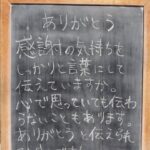 ありがとう
感謝の気持ちを
しっかりと言葉にして
伝えていますか。
心で思っていても伝わ
らないこともあります。
ありがとうと伝えられ